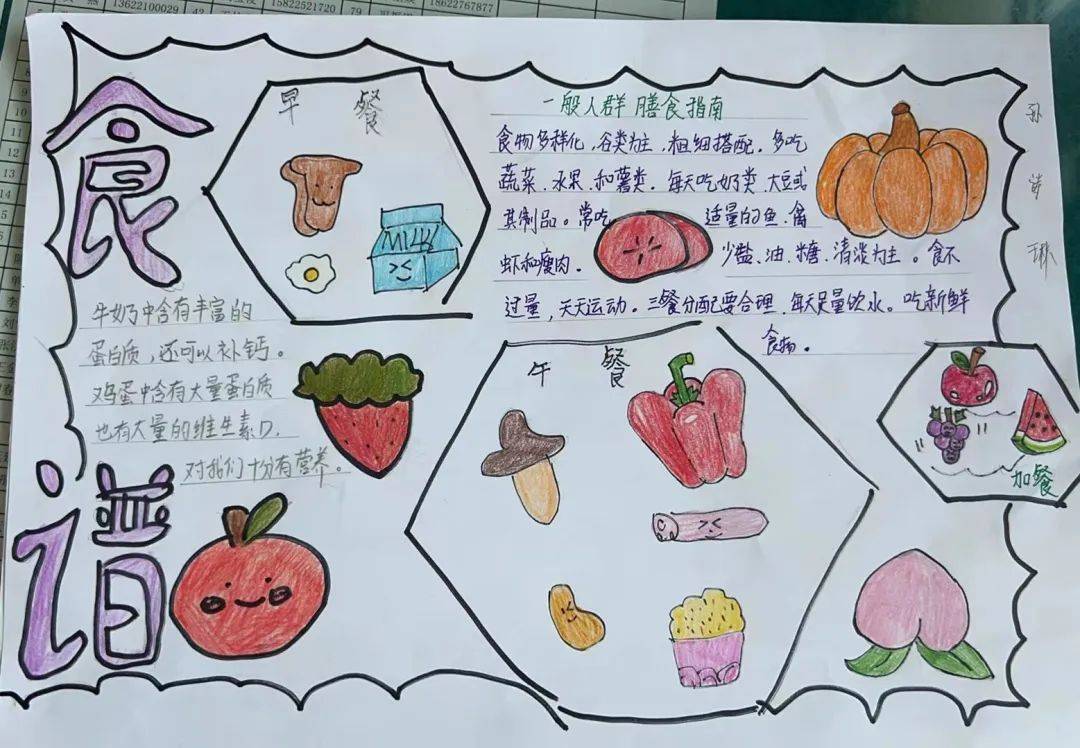 13622100029
42
15822521720
79
18622767877
10
11
12
13
14
15
食
谱
早 餐
MILK
牛奶中含有丰富的
蛋白质，还可以补钙。
鸡蛋中含有大量蛋白质
也有大量的维生素D.
对我们十分有营养。
一般人群膳食指南
食物多样化，谷类为主，粗细搭配。多吃
蔬菜、水果、和薯类。每天吃奶类、大豆或
其制品。常吃 适量的鱼、禽
虾和瘦肉. 少盐、油、糖、清淡为主。食不
过量，天天运动。三餐分配要合理，每天足量饮水。吃新鲜
食物。
午 餐
加餐
孙
琳